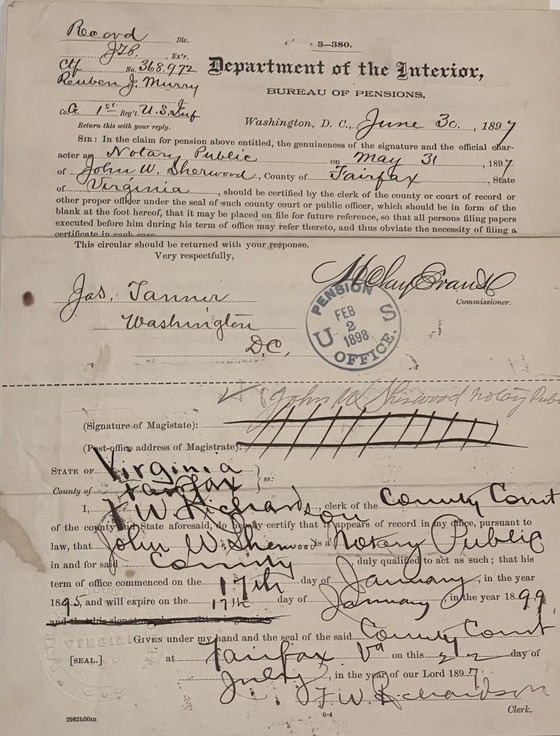 Record Div.
3—380.
J.F.B., Ex'r.
Ctf No. 368.972
Reuben J. Murry
Co. G. 1st Reg't U.S. Inf
Return this with your reply.
Department of the Interior,
BUREAU OF PENSIONS,
Washington, D. C., June 30, 1897
SIR: In the claim for pension above entitled, the genuineness of the signature and the official char-
acter as Notary Public on May 31, 1897
of John W. Sherwood, County of Fairfax, State
of Virginia, should be certified by the clerk of the county or court of record or
other proper officer under the seal of such county court or public officer, which should be in form of the
blank at the foot hereof, that it may be placed on file for future reference, so that all persons filing papers
executed before him during his term of office may refer thereto, and thus obviate the necessity of filing a
certificate in each case.
This circular should be returned with your response.
Very respectfully,
H Clay Evans
Commissioner.
Jas. Tanner
Washington
D.C.
PENSION OFFICE.
U S
FEB
2
1898
John W Sherwood Notary Public
(Signature of Magistate):
(Post-office address of Magistrate):
STATE OF Virginia
County of Fairfax } ss:
I, F W. Richardson, clerk of the County Court
of the county and State aforesaid, do hereby certify that it appears of record in my office, pursuant to
law, that John W. Sherwood is a Notary Public
in and for said County, duly qualified to act as such; that his
term of office commenced on the 17th day of January, in the year
1895, and will expire on the 17th day of January, in the year 1899
and that his signature
GIVEN under my hand and the seal of the said County Court
[SEAL.] at Fairfax Va on this 22 day of
July, in the year of our Lord 1897
F. W. Richardson
Clerk.
2962b50m
0-4